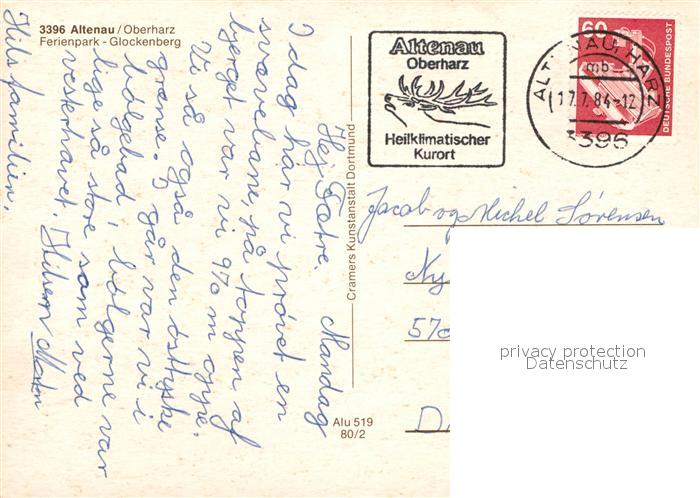 3396 Altenau/Oberharz
Ferienpark - Glockenberg
Hej Fætre. Mandag
I dag har vi prøvet en
svævebane, på toppen af
bjerget var vi 970 m oppe.
Vi så også den østtyske
grænse. I går var vi i
bølgebad, bølgerne var
lige så store som ved
vesterhavet. Hilsen Morten
Hils familien.
Cramers Kunstanstalt Dortmund
Alu 519
80/2
Altenau
Oberharz
Heilklimatischer
Kurort
ALTENAU, HARZ
mb
17.7.84-12
3396
60
DEUTSCHE BUNDESPOST
Jacob og Michel Sørensen
Ny
57
D
privacy protection
Datenschutz